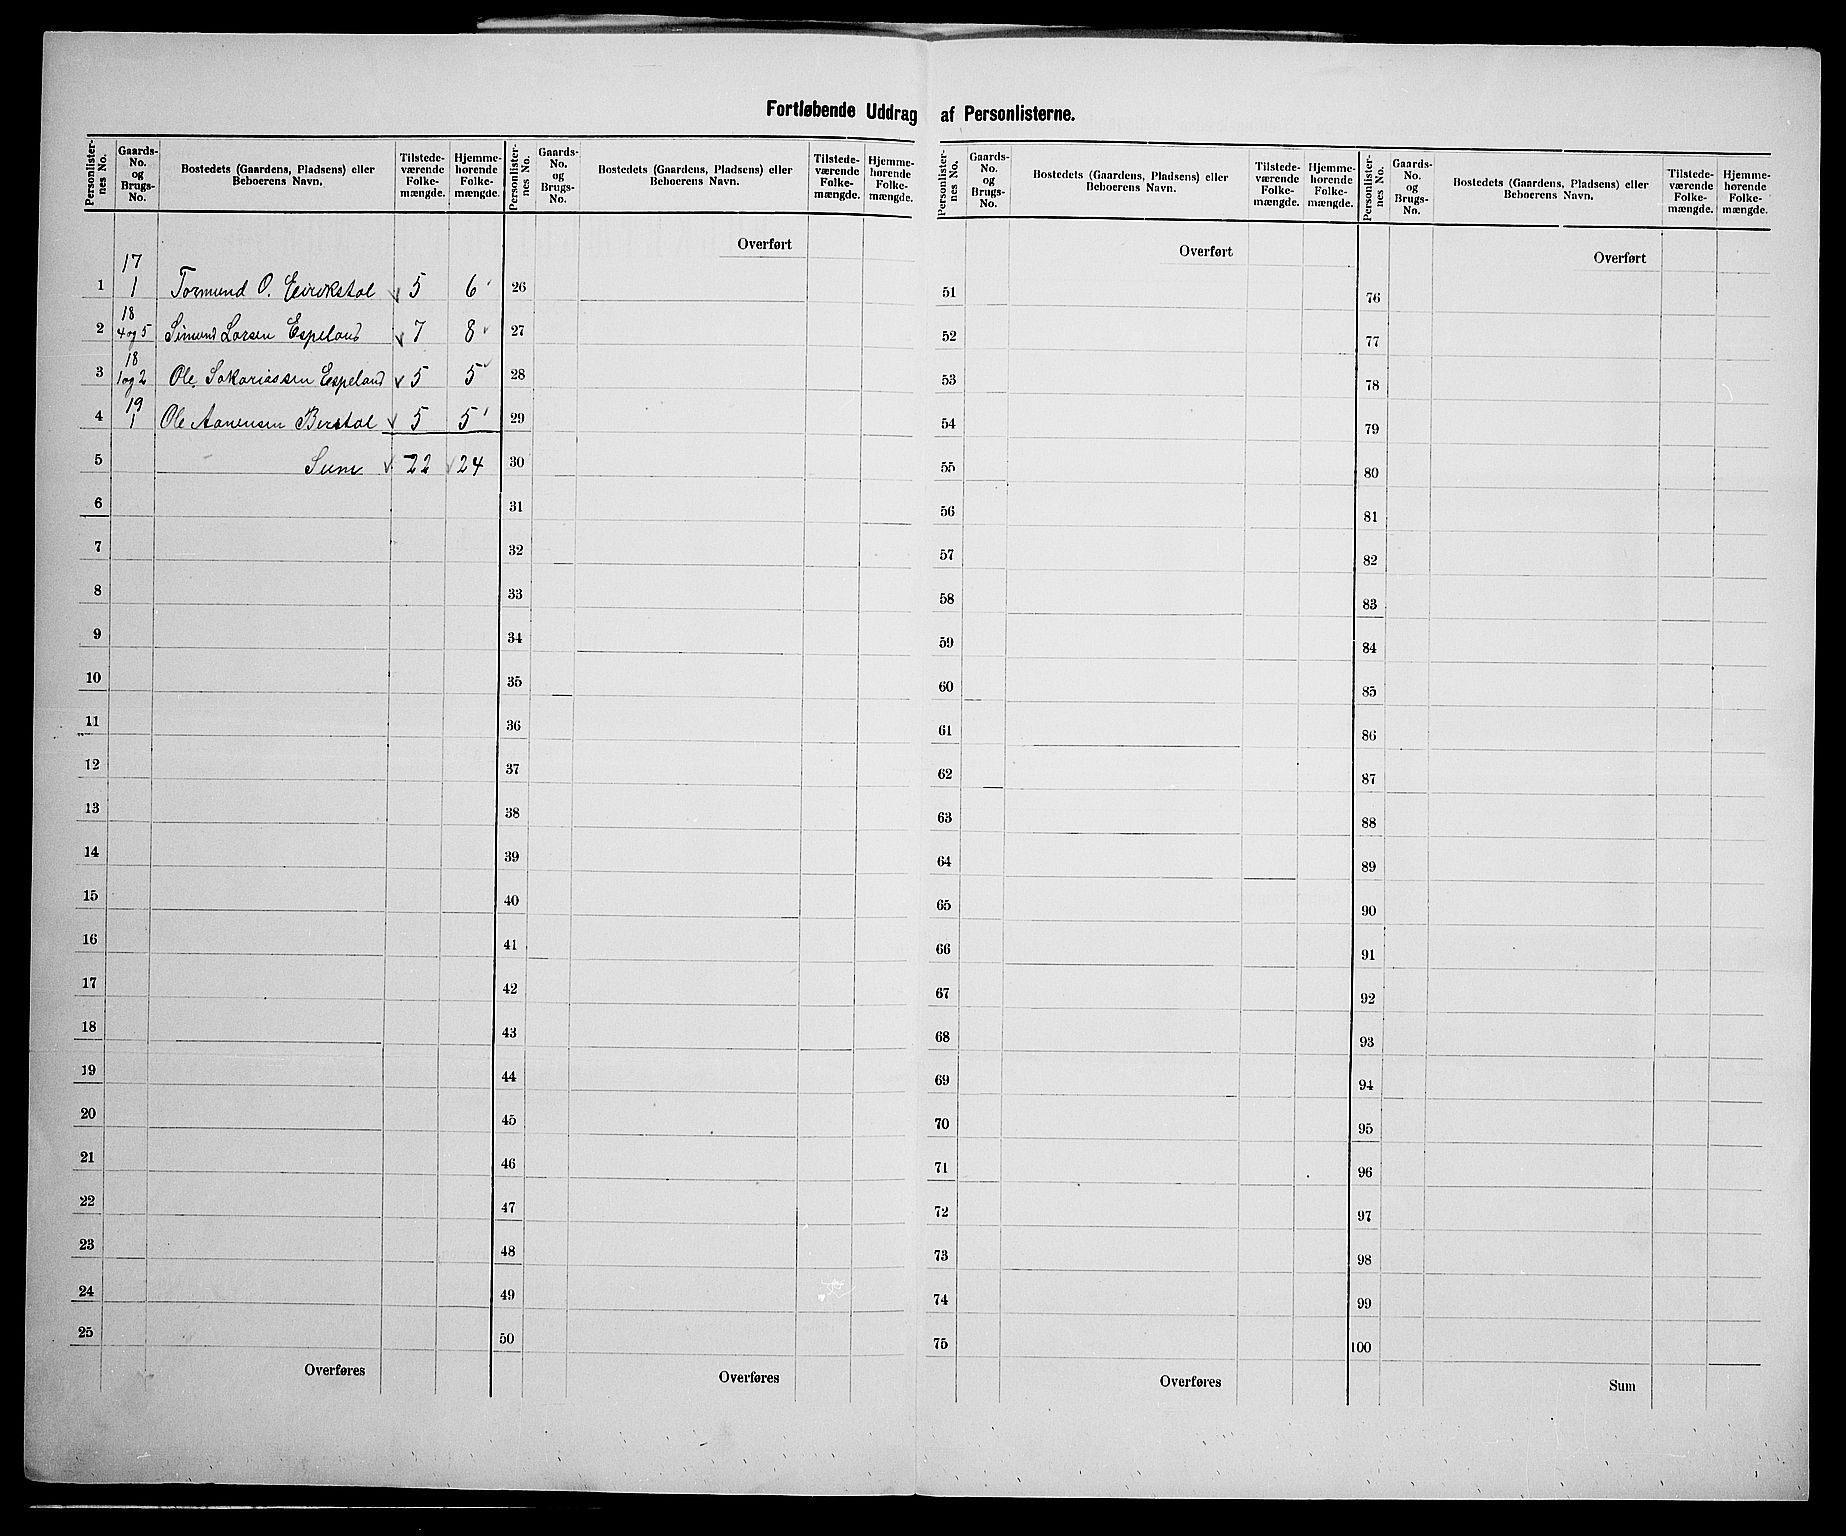 Fortløbende Uddrag af Personlisterne.
Personlister-nes No. Gaards-No. og Brugs-No. Bostedets (Gaardens, Pladsens) eller Beboerens Navn. Tilstede-værende Folke-mængde. Hjemme-hørende Folke-mængde.
Personlister-nes No. Gaards-No. og Brugs-No. Bostedets (Gaardens, Pladsens) eller Beboerens Navn. Tilstede-værende Folke-mængde. Hjemme-hørende Folke-mængde.
Personlister-nes No. Gaards-No. og Brugs-No. Bostedets (Gaardens, Pladsens) eller Beboerens Navn. Tilstede-værende Folke-mængde. Hjemme-hørende Folke-mængde.
Personlister-nes No. Gaards-No. og Brugs-No. Bostedets (Gaardens, Pladsens) eller Beboerens Navn. Tilstede-værende Folke-mængde. Hjemme-hørende Folke-mængde.
17
1 1 Tormund O. Eirikstøl 5 6
18
2 4 og 5 Simund Larsen Espeland 7 8
18
3 1 og 2 Ole Sakariassen Espeland 5 5
19
4 1 Ole Aanensen Berstøl 5 5
5 Sum 22 24
6
7
8
9
10
11
12
13
14
15
16
17
18
19
20
21
22
23
24
25
Overføres
Overført
26
27
28
29
30
31
32
33
34
35
36
37
38
39
40
41
42
43
44
45
46
47
48
49
50
Overføres
Overført
51
52
53
54
55
56
57
58
59
60
61
62
63
64
65
66
67
68
69
70
71
72
73
74
75
Overføres
Overført
76
77
78
79
80
81
82
83
84
85
86
87
88
89
90
91
92
93
94
95
96
97
98
99
100
Sum